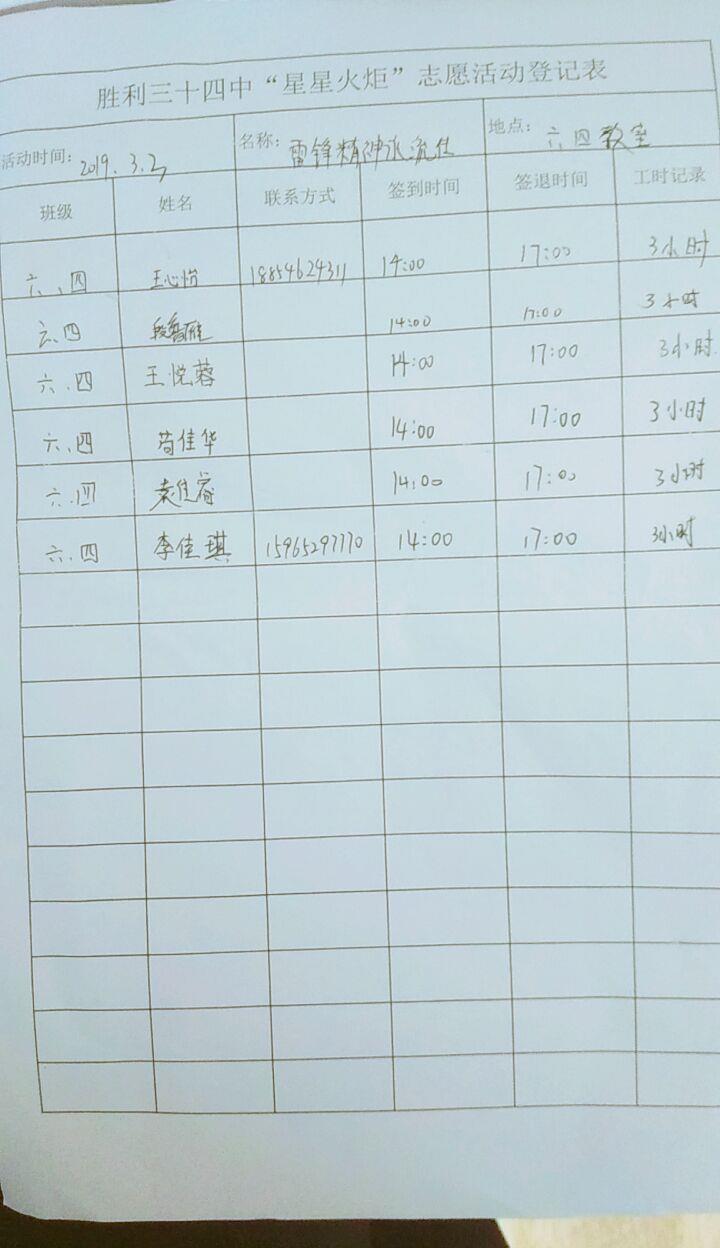 胜利三十四中“星星火炬”志愿活动登记表
活动时间: 2019.3.2 名称: 雷锋精神永流传 地点: 六.四教室
班级 姓名 联系方式 签到时间 签退时间 工时记录
六.四 王心怡 18854624311 14:00 17:00 3小时
六.四 14:00 17:00 3小时
六.四 王悦蓉 14:00 17:00 3小时
六.四 苟佳华 14:00 17:00 3小时
六.四 袁佳睿 14:00 17:00 3小时
六.四 李佳琪 15965297770 14:00 17:00 3小时